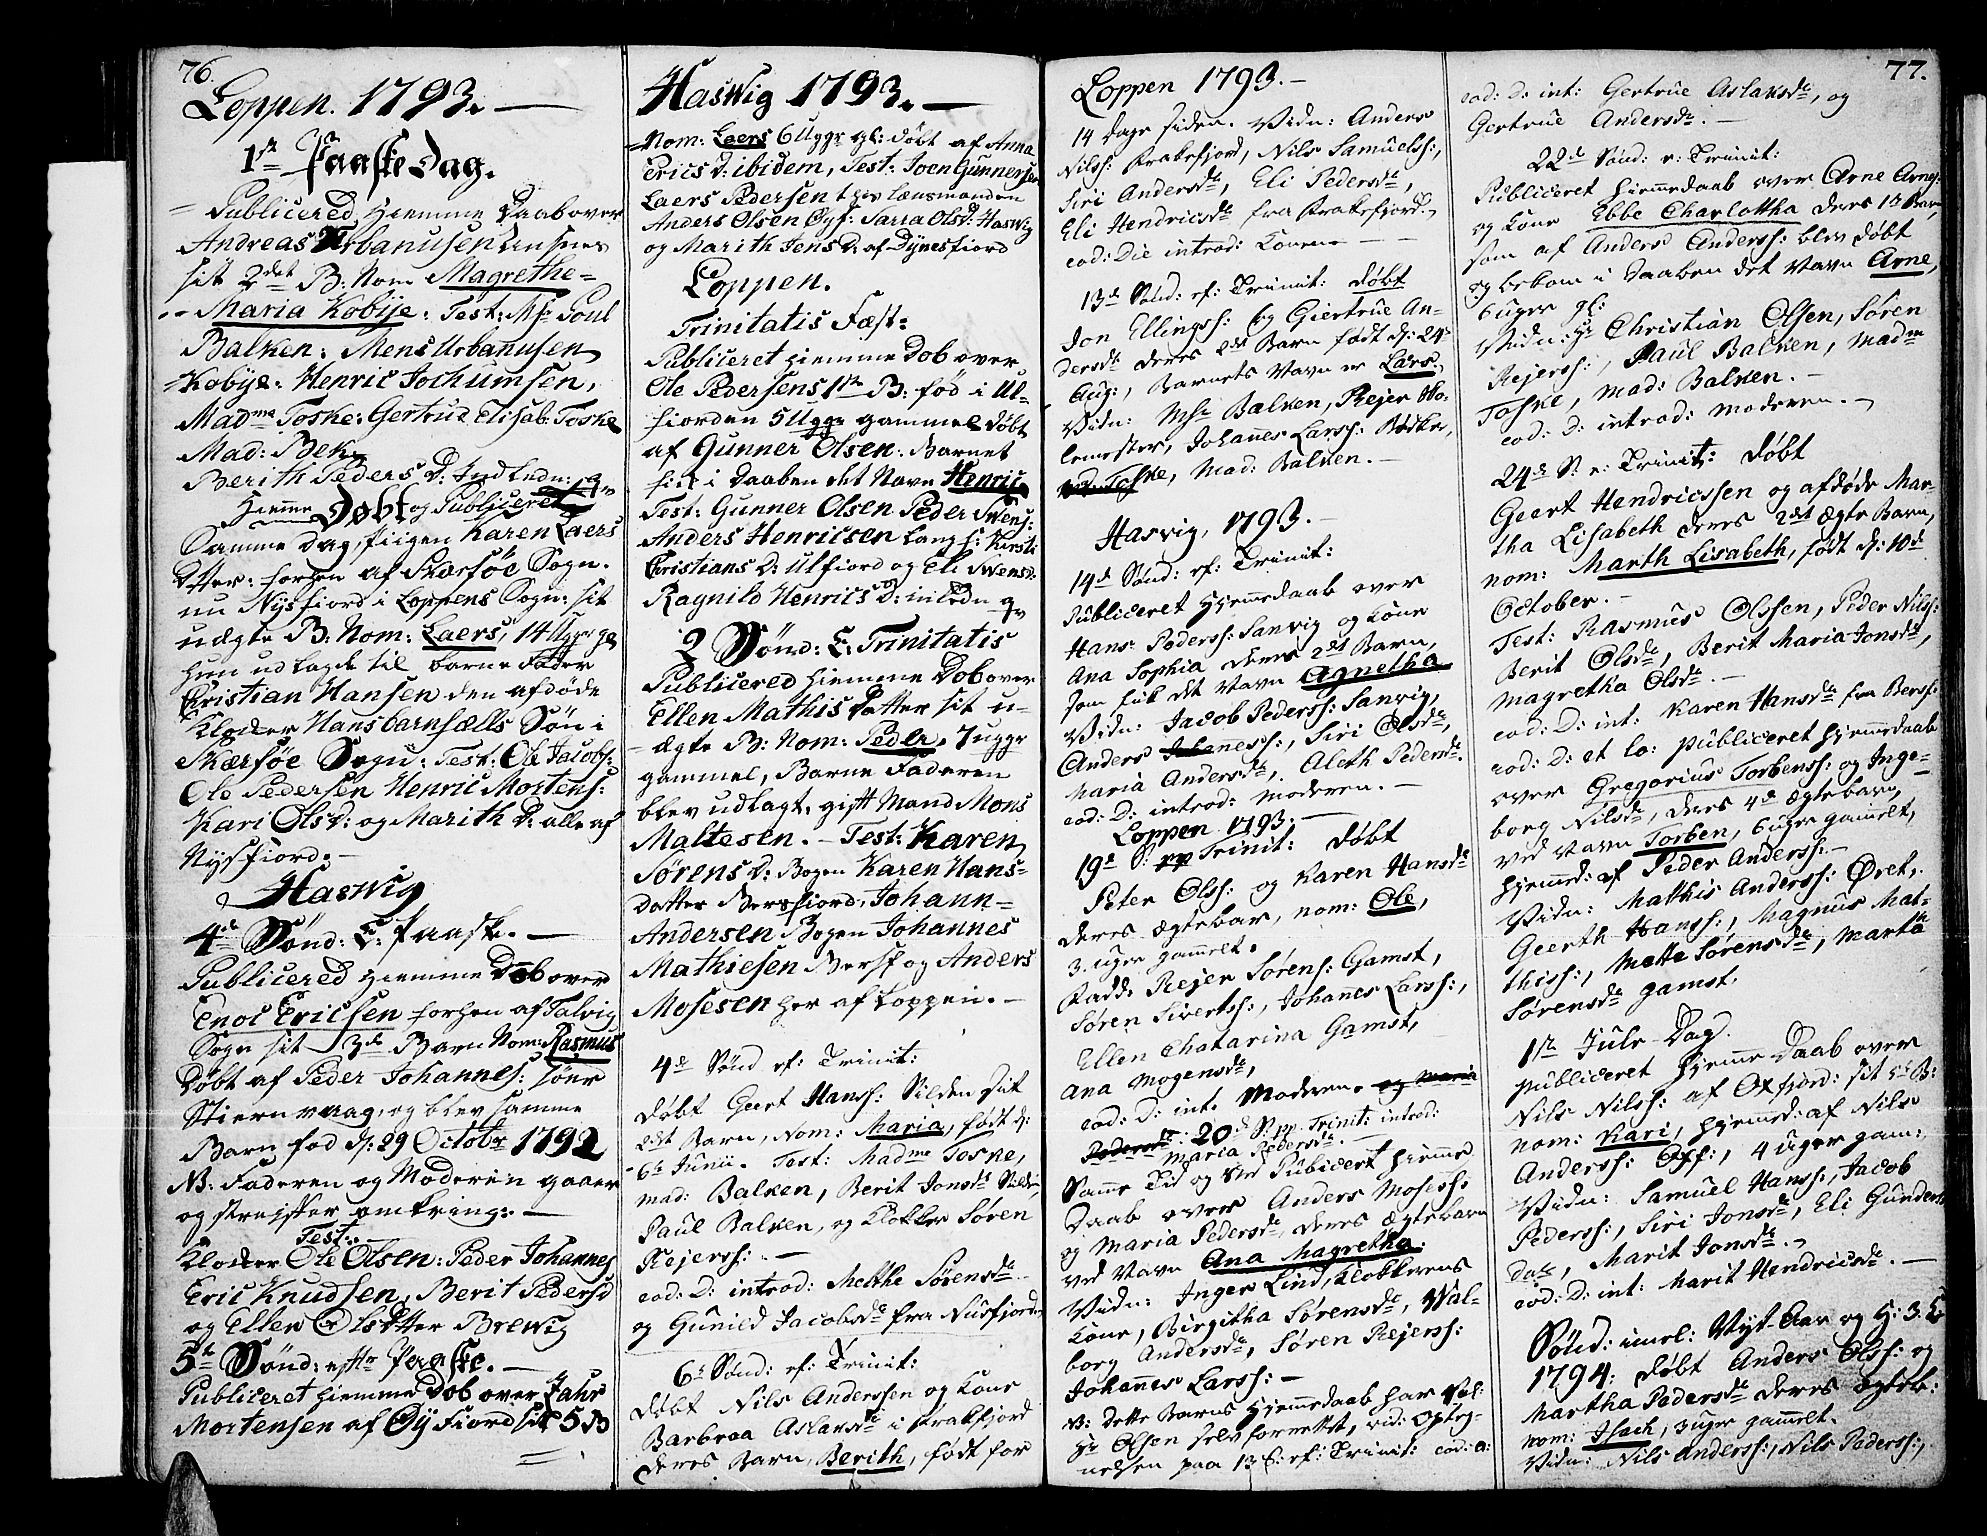 76.
Loppen. 1793. —
1ste Paaske Dag.
Publicered Hiemme Daab over
Andreas Urbanusen
sit 2det B: Nom Magrethe-
Maria Kobye: Test: Msr Poul
Balken: Mens Urbanusen
Kobye: Henric Jochumsen,
Madme Foske: Gertrud Elisab: Foske
Mad: Bek
Berith Peders D: Indledn:
Hiemme Døbt og Publiceret
Samme Dag, Piigen Karen Laers
Dtter: forhen af Skærføe Sogn.
nu Nysfiord i Loppens Sogn: sit
uægte B: Nom: Laers, 14 Ugger gl
hun udlagde til barne Fader
Christian Hansen den afdöde
Klocker Hans Carnfælls Sön i
Skærföe Sogn: Test: Ole Jacobs:
Ole Pedersen Henric Mortens:
Kari Ols D: og Marith D: alle af
Nysfiord. —
Haswig
4de Sönd: E: Paaske. —
Publicered Hiemme Dob over
Enoc Ericsen forhen af Talvig
Sogn sit 3de Barn Nom: Rasmus
Døbt af Peder Johannes: sönr
Stiernvaag, og blev samme
Barn fød d: 29 Octobr 1792
NB: Faderen og Moderen gaaer
og streifter omkring: —
Test:
Klocker Ole Olsen: Peder Johannes
Eric Knudsen, Berit Peders D
og Ellen Ols Dtter Brewig
5te Sönd: efttr Paaske. —
Publiceret Hiemme Dob over Jahr
Mortensen af Øyfiord sit 5 B
Haswig 1793. —
Nom: Laers 6 Uggr gl: døbt af Anna
Erics D: ibidem, Test: Joen Gunnersen
Laers Pedersen hos Lensmanden
Anders Olsen Øyf: Sarra Ols D: Haswig
og Marith Jens D: af Dynesfiord
Loppen.
Trinitatis Fæst:
Publiceret Hiemme Dob over
Ole Pedersens 1ste B: fød i Ul-
fiorden 5 Ugger gammel døbt
af Gunner Olsen: Barnet
fik i Daaben det Navn Henric
Test: Gunner Olsen Peder Swens:
Anders Henricsen Langf: Kirsti
Christians D: Ulfiord og Eli Swens D:
Ragnild Henrics D: inledn
2 Sönd: E: Trinitatis
Publicered Hiemme Dob over
Ellen Mathis Datter sit u-
ægte B: Nom: Peder, 7 uggr
gammel, Barne Faderen
blev udlagt, gift Mand Mons
Maltesen. — Test: Karen
Sörens D: Bogen Karen Hans-
datter Bersfiord, Johann-
Andersen Bogen Johannes
Mathiesen Bersf og Anders
Mosesen her af Loppen. —
4de Sønd ef: Trinit:
Døbt Geert Hanss: Silden sit
2det Barn, Nom: Maria, født d:
6te Junii. Test: Madme Foske,
mad: Balken, Berit Jonsde Silden,
Paul Balken, og Klokker Søren
Rejerss: —
eod: D: introd: Mekke Sørensde
og Gunild Jacobsde fra Nusfjorden
6te Sønd: ef: Trinit:
Døbt Nils Anderssen og Kone
Barbroa Aslaksde i Frakfjord
deres Barn, Berith, født for
Loppen 1793. —
14 Dage siden. Vidn: Anders
Nilss: Frakefjord, Nils Samuelss:,
Siri Andersde, Eli Pedersde,
Eli Hendricsde fra Frakefjord.
eod: Die introd: Konen —
13de Sønd: ef: Trinit: Døbt
Jon Ellingss: og Giertrue An-
dersde deres 2det Barn født d: 24de
Aug:, Barnets Navn er Lars.
Vidn: Msr Balken, Rejer Ho-
lemester, Johannes Larss: Bødker,
Foske, Mad: Balken. —
Hasvig, 1793. —
14de Sønd: ef: Trinit:
Publiceret Hjemmedaab over
Hans Pederss: Sanvig og Kone
Ana Sophia deres 2det Barn,
som fik det Navn Agnetha
Vidn: Jacob Pederss: Sanvig,
Anders Johanness:, Siri Olsde,
Maria Andersde, Aleth Pedersde.
eod: D: introd: Moderen. —
Loppen 1793. —
19de S: pp Trinit: Døbt
Peter Olss: og Karen Hansde
deres Ægtebar, nom: Ole,
3. uger gammel.
Fadd: Rejer Sørens: Gamst,
Søren Siverts:, Johannes Larss:,
Ellen Chatarina Gamst,
Ana Mogensde,
eod: D: int. Moderen. og Maria
Pedersde: 20de S: pp. Trinit: introd:
Maria Pedersde. —
Samme Tid og Sted Publicert Hjemme
Daab over Anders Mosess:
og Maria Pedersde, deres Ægtebarn
ved Navn Ana Magretha.
Vidn: Inger Lind, Klokkerens
Kone, Birgitha Sørensde, Wal-
borg Andersde, Søren Rejerss:
Johannes Larss: —
NB: dette Barns Hjemmedaab har Vel:
Hr Olsen selv forrettet, vid: Opteg-
nelsen paa 13 S: ef: Trinit: eod: a:
77.
eod: D: int: Gertrue Aslaksde, og
Gertrue Andersde. —
22de Sønd: e: Trinit:
Publiceret Hjemmedaab over Arne Arnes:
og Kone Ebbe Charlottha deres 1te Barn,
som af Anders Anderss: blev Døbt
og bekom i Daaben det Navn Arne,
6 uger gl:
Vidn: Hr Christian Olsen, Søren
Rejerss:, Paul Balken, Madme
Foske, Mad: Balken. —
eod: D: introd: Moderen. —
24de S: e: Trinit: Døbt
Geert Hendricssen og afdøde Mar-
tha Lisabeth deres 2det Ægte Barn,
nom: Marth Lisabeth, født d: 10de
October. —
Test: Rasmus Olssen, Peder Nilss:
Berit Olsde, Berit Maria Jonsde,
Magretha Olsde. —
eod: D: int: Karen Hansde fra Bersf:
eod: D: et lo: publiceret Hjemmedaab
over Gregorius Torbenss: og Inge-
borg Nilsde, deres 4de Ægtebarn,
ved Navn Torben, 6 uger gammel,
Hjemmed: af Peder Anderss: —
Vidn: Mathis Anderss: Øret,
Geerth Hanss:, Magnus Mat-
thiss:, Mette Sørensde, Martha
Sørensde Gamst.
1te Jule-Dag.
Publiceret Hjemme-Daab over
Nils Nilss: af Oxfjord: sit 5te B:
nom: Kari, Hjemmed: af Nils
Anderss: Oxf:, 4 uger gam:,
Vidn: Samuel Hanss:, Jacob
Pederss:, Siri Jonsde, Eli Gunders
Datr, Marit Jonsde. —
eod: D: int: Marit Hendricsde. —
Sönd: imel: Nyt-Aar og H: 3. K
1794: Døbt Anders Olss: og
Martha Pedersde deres Ægteb:
nom: Isach, 3 uger gammel.
Vidn: Nils Anderss:, Nils Pederss:,